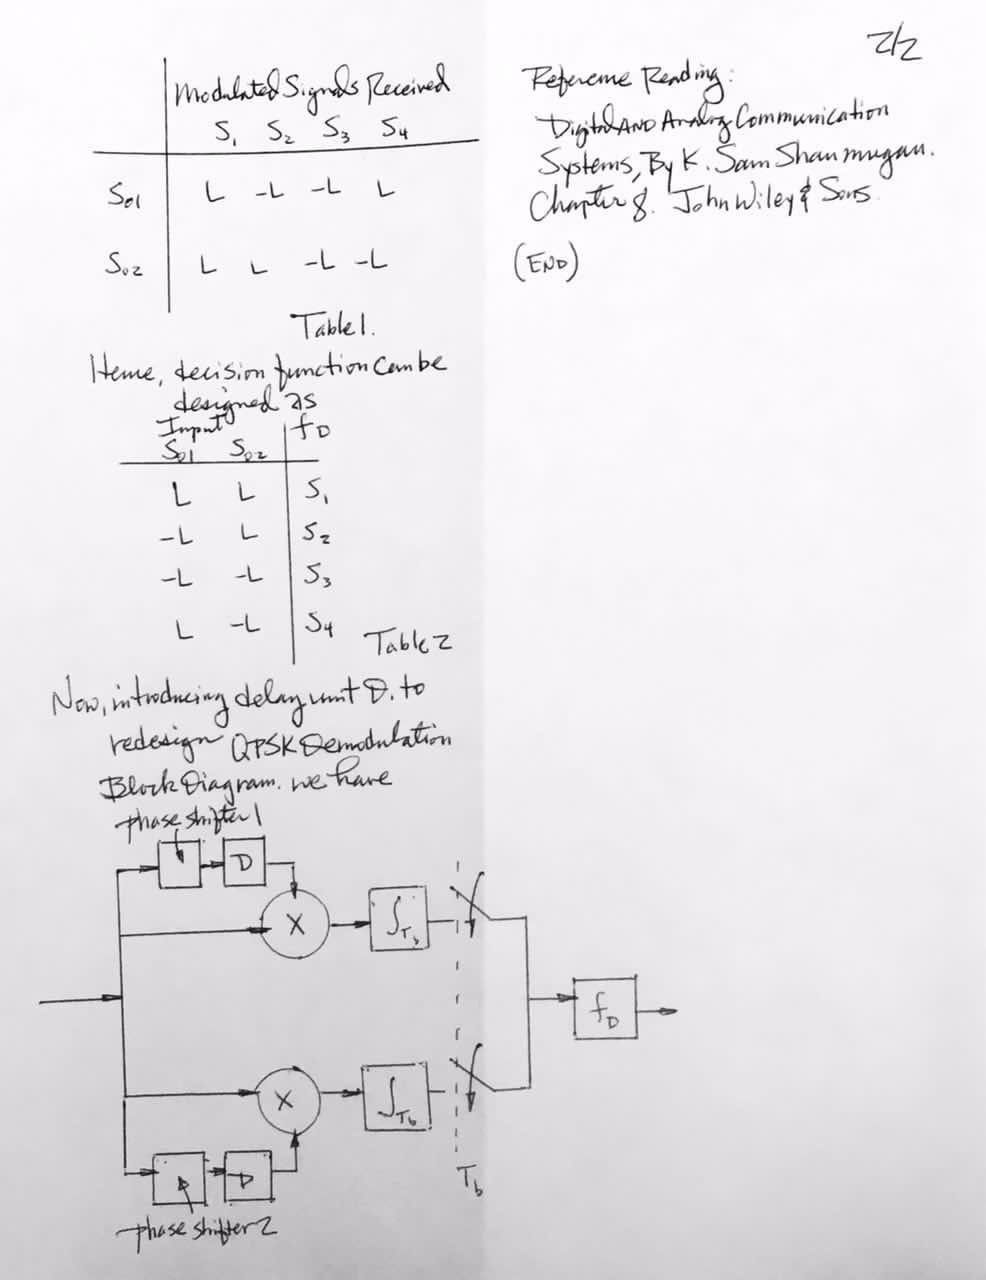 2/2
Modulated Signals Received
S1 S2 S3 S4
S01 L -L -L L
S02 L L -L -L
Table 1.
Hence, decision function can be
designed as
Input fD
S01 S02
L L S1
-L L S2
-L -L S3
L -L S4
Table 2
Now, introducing delay unit D. to
redesign QPSK Demodulation
Block Diagram. we have
phase shifter 1
D
X
∫Tb
fD
X
∫Tb
D
Tb
phase shifter 2
Reference Reading:
Digital AND Analog Communication
Systems, By K. Sam Shanmugan.
Chapter 8. John Wiley & Sons.
(END)